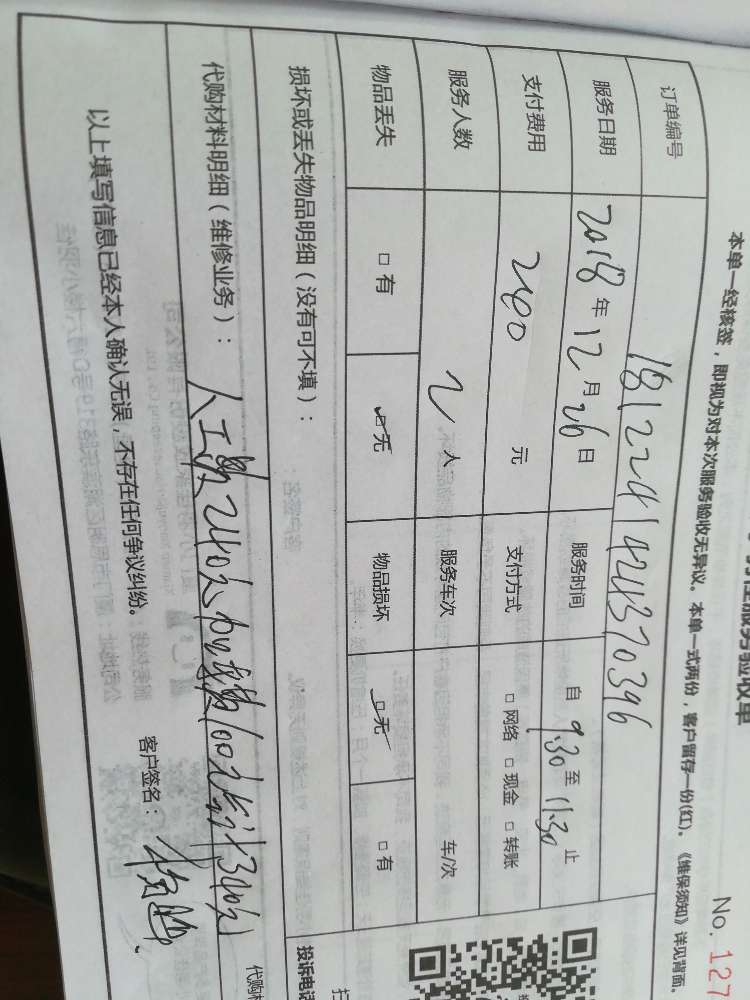 服务验收单
No. 127
本单一经核签，即视为对本次服务验收无异议。本单一式两份，客户留存一份(红)。《维保须知》详见背面。
订单编号 1812241424370396
服务日期 2018年12月26日 服务时间 自 9.30 至 11.30 止
支付费用 240 元 支付方式 □ 网络 □ 现金 □ 转账
服务人数 2 人 服务车次 车/次
物品丢失 □ 有 □ 无 物品损坏 □ 无 □ 有
损坏或丢失物品明细（没有可不填）：
代购材料明细（维修业务）： 人工费240元 100元 340元
代购
以上填写信息已经本人确认无误，不存在任何争议纠纷。
客户签名：
投诉电话